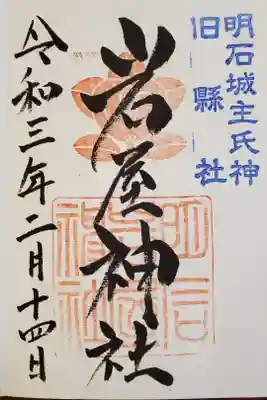 明石城主氏神
旧縣社
岩屋神社
令和三年二月十四日